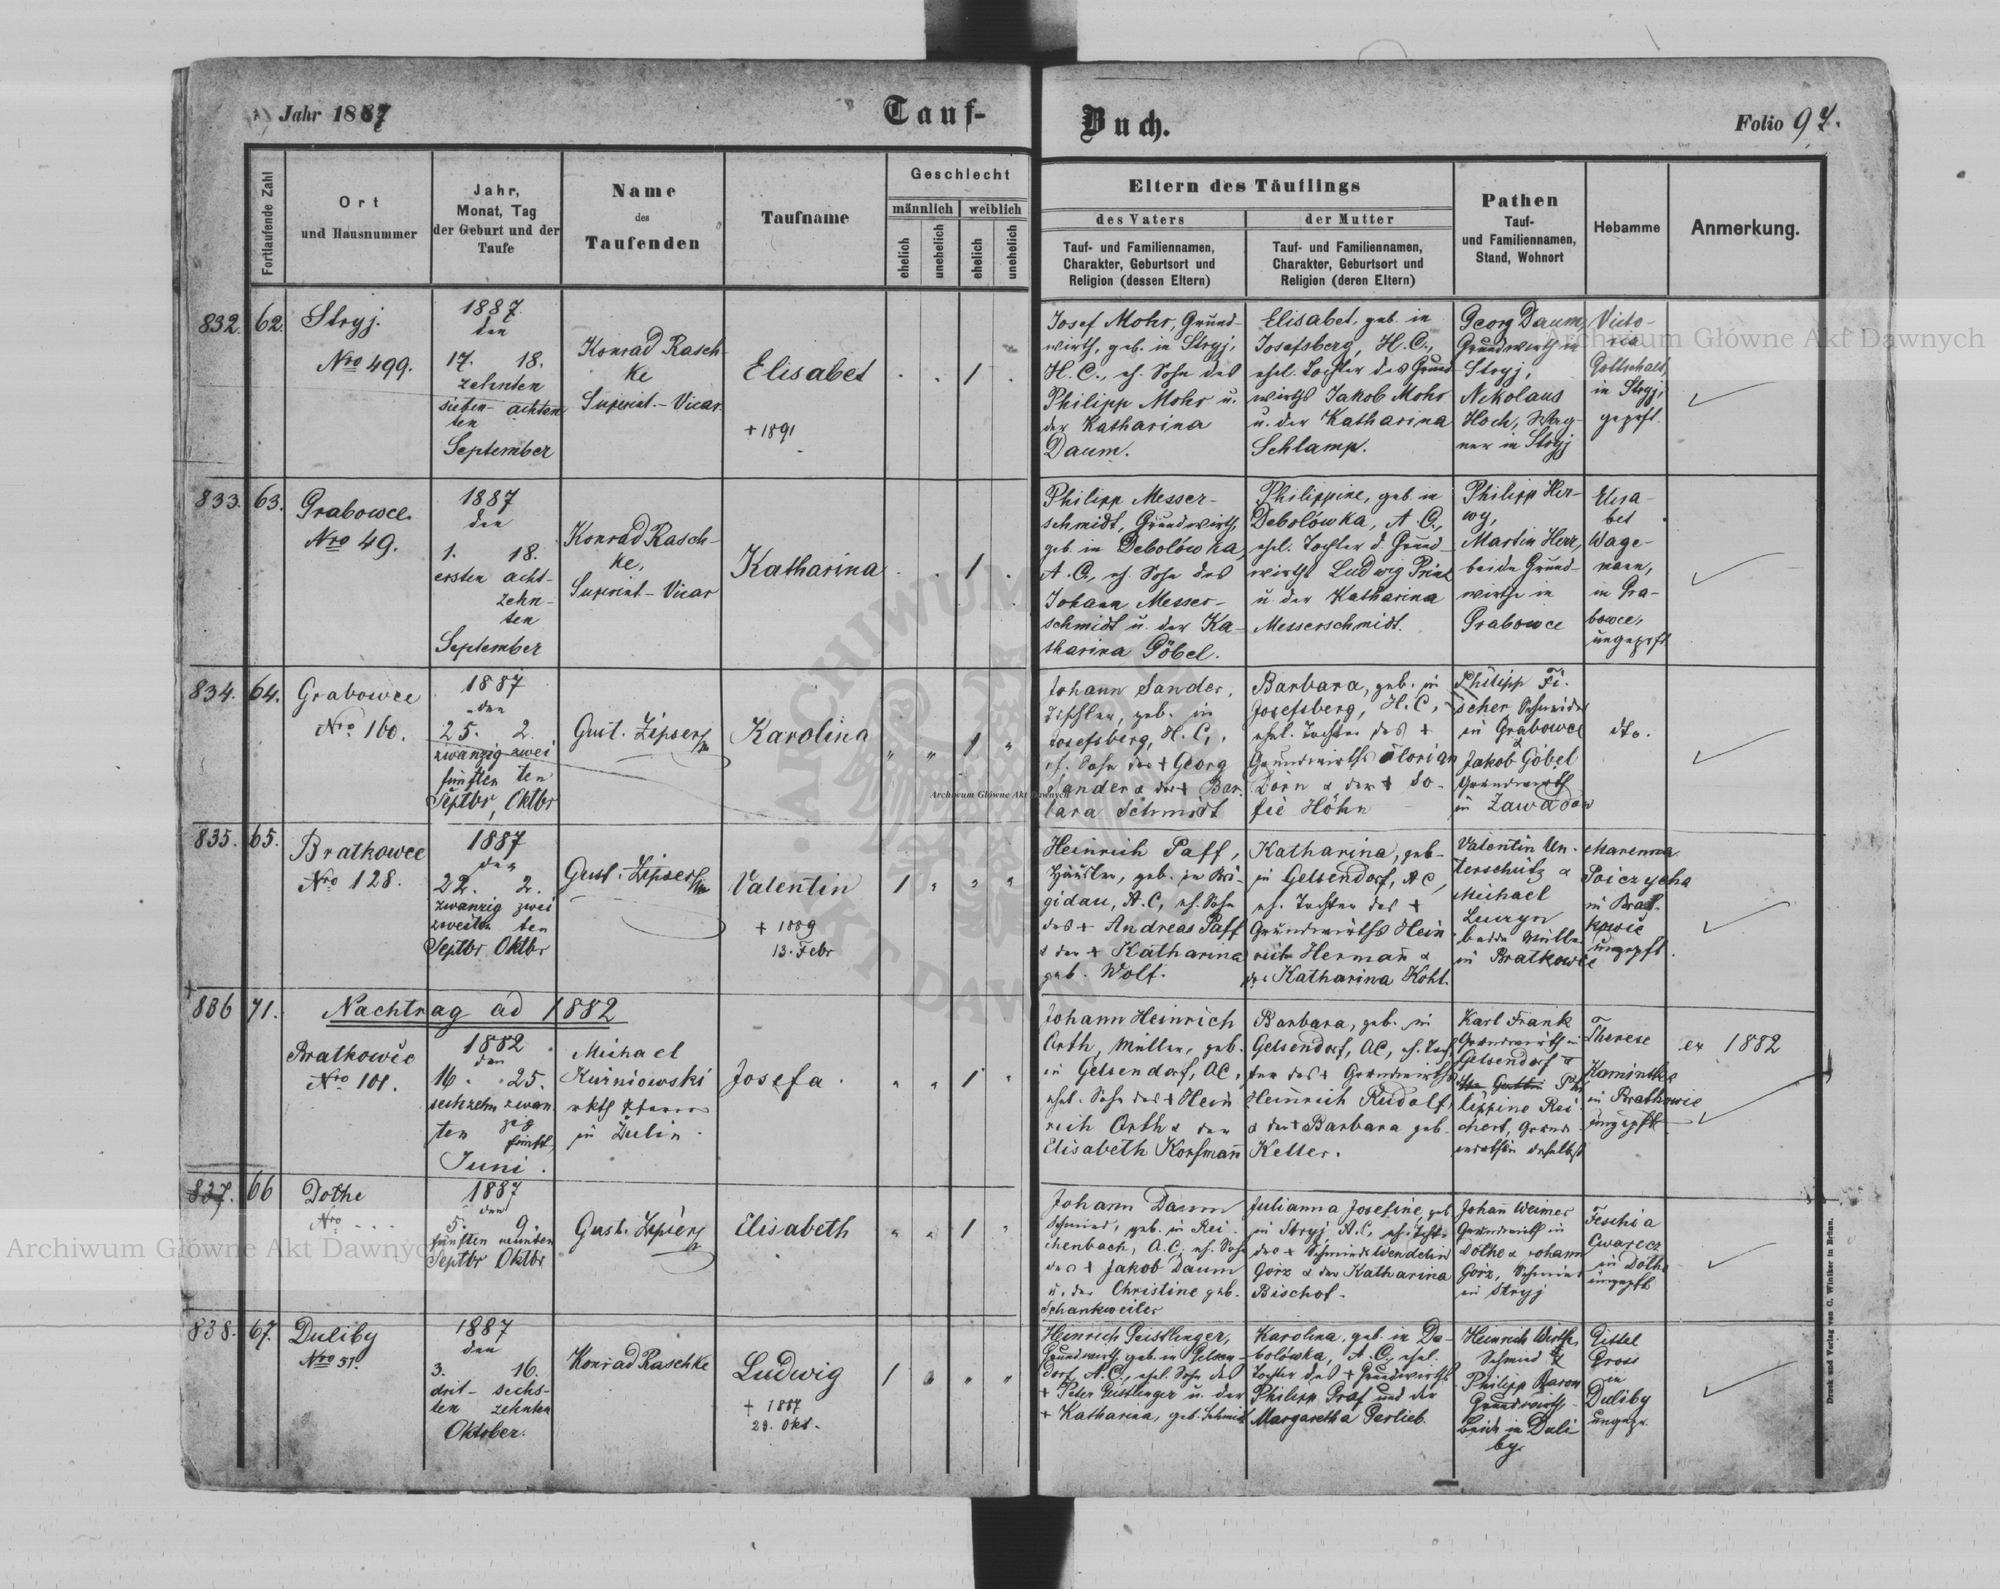 Jahr 1887
Tauf-
Buch.
Folio 97.
Fortlaufende Zahl
Ort
und Hausnummer
Jahr,
Monat, Tag
der Geburt und der
Taufe
Name
des
Taufenden
Taufname
Geschlecht
männlich
weiblich
ehelich
unehelich
ehelich
unehelich
Eltern des Täuflings
des Vaters
der Mutter
Tauf- und Familiennamen,
Charakter, Geburtsort und
Religion (dessen Eltern)
Tauf- und Familiennamen,
Charakter, Geburtsort und
Religion (deren Eltern)
Pathen
Tauf-
und Familiennamen,
Stand, Wohnort
Hebamme
Anmerkung.
832.
62.
Stryj.
Nro 499.
1887.
den
17. 18.
zehnten
sieben- achten
ten
September
Konrad Rasch-
ke
Superint.-Vicar
Elisabet
+ 1891
1
Josef Mohr, Grund-
wirth, geb. in Stryj,
H. C., eh. Sohn des
Philipp Mohr u.
der Katharina
Daum.
Elisabet, geb. in
Josefsberg, H. C.,
ehel. Tochter des Grund-
wirths Jakob Mohr
u. der Katharina
Schlamp.
Georg Daum,
Grundwirth in
Stryj,
Nikolaus
Hoch, Wag-
ner in Stryj
Victo-
ria
Gottschalk,
in Stryj,
geprft.
833.
63.
Grabowce
Nro 49.
1887
den
1. 18.
ersten acht-
zehn-
ten
September
Konrad Rasch-
ke,
Superint-Vicar
Katharina
1
Philipp Messer-
schmidt, Grundwirth,
geb. in Debolówka,
A. C., eh. Sohn des
Johann Messer-
schmidt u. der Ka-
tharina Göbel.
Philippine, geb. in
Debolówka, A. C.,
ehel. Tochter d. Grund-
wirths Ludwig Prinz
u. der Katharina
Messerschmidt.
Philipp Her-
wy,
Martin Herr,
beide Grund-
wirthe in
Grabowce
Elisa-
bet
Wage-
mann,
in Gra-
bowce,
ungeprft
834.
64.
Grabowce
Nro 160.
1887
den
25. 2.
zwanzig zwei
fünften ten
Septbr, Oktbr
Gust. Zipser
Karolina
1
Johann Sander,
Tischler, geb. in
Josefsberg, H. C.,
eh. Sohn des + Georg
Sander & der + Bar-
bara Schmidt
Barbara, geb. in
Josefsberg, H. C.,
ehel. Tochter des +
Grundwirths Florian
Dorn & der + So-
fie Höhn
Philipp Fi-
scher Schneider
in Grabowce
&
Jakob Göbel
Grundwirth
in Zawadow
dto.
835.
65.
Bratkowce
Nro 128.
1887
den
22. 2.
zwanzig zwei
zweiten ten
Septbr Oktbr
Gust. Zipser
Valentin
+ 1889
13. Febr
1
Heinrich Paff,
Häusler, geb. in Bri-
gidau, A. C, eh. Sohn
des + Andreas Paff
& der + Katharina
geb. Wolf.
Katharina, geb-
in Gelsendorf, A C,
eh. Tochter des +
Grundwirths Hein
rich Herman̄ &
der Katharina Kohl.
Valentin Un-
terschütz &
Michael
beide Müller
in Bratkowce
Marenna
Poiczycha
in Brat-
kowce
ungeprft.
836
71.
Nachtrag ad 1882
Bratkowce
Nro 101.
1882
den
16. 25.
sechzehn zwan
ten zig
fünft.
Juni.
Michael
Kurniowski
rkth Pfarrer
in Zulin.
Josefa.
1
Johann Heinrich
Orth, Müller, geb.
in Gelsendorf, AC,
ehel. Sohn des + Hein
rich Orth & der
Elisabeth Korfman̄
Barbara, geb. in
Gelsendorf, AC, eh. Toch
ter des + Grundwirths
Heinrich Rudolf,
& der + Barbara geb.
Keller.
Karl Frank
Grundwirth in
Gelsendorf &
Phi
lippine Rei
chert, Grund
wirthin daselbst
Therese
Kaminska
in Bratkowce
ungeprft
ex 1882
837.
66
Dolhe
Nro - - -
1887
den
5. 9.
fünften neunten
Septbr Oktbr
Gust. Zipser
Elisabeth
1
Johann Daum
Schmied, geb. in Rei-
chenbach, A.C. eh. Sohn
des + Jakob Daum
u. der Christine geb.
Schankweiler
Julianna Josefine, geb
in Stryj, A.C, eh. Tocht.
des + Schmieds Wendelin
Görz & der Katharina
Bischof.
Johan̄ Weimer
Grundwirth in
Dolhe & Johann
Görz, Schmied
in Stryj
Feschia
Gwarecz
in Dolhe
ungeprft
838.
67.
Duliby
Nro 51.
1887
den
3. 16.
drit- sechs-
ten zehnten
Oktober.
Konrad Raschke
Ludwig
+ 1887
23. Okt.
1
Heinrich Geistlinger,
Grundwirth, geb. in Gelsen-
dorf, A.C., ehel. Sohn des
+ Peter Geistlinger u. der
+ Katharina, geb. Schmidt
Karolina, geb. in De-
bolówka, A. C., ehel.
Tochter des + Grundwirths
Philipp Graf und der
Margaretha Gerlieb.
Heinrich Wirth,
Schmied &
Philipp Baron
Grundwirth,
beide in Duli
by.
Gittel
Gross
in
Duliby
ungepr.
Druck und Verlag von C. Winiker in Brünn.
Archiwum Główne Akt Dawnych
Archiwum Główne Akt Dawnych
Archiwum Główne Akt Dawnych
ARCHIWUM
AKT DAWNYCH